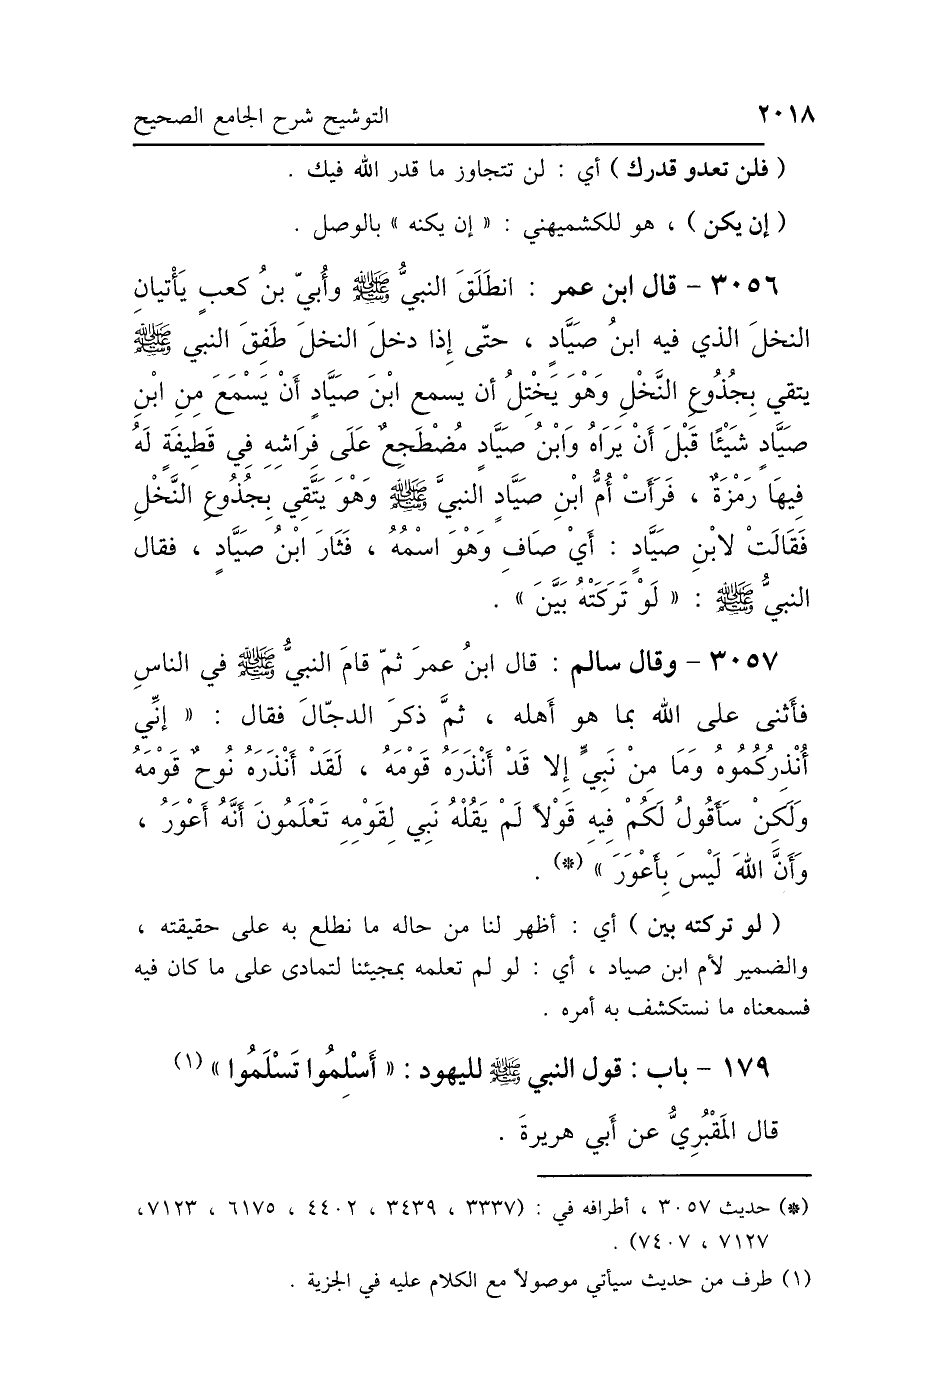 ٢٠١٨ التوشيح شرح الجامع الصحيح
( فلن تعدو قدرك ) أي : لن تتجاوز ما قدر الله فيك .
( إن يكن ) ، هو للكشميهني : « إن يكنه » بالوصل .
٣٠٥٦ – قال ابن عمر : انطَلَقَ النبيُّ ﷺ وأُبيّ بنُ كعبٍ يَأْتيانِ
النخلَ الذي فيه ابنُ صَيَّادٍ ، حتّى إذا دخلَ النخلَ طَفِقَ النبي ﷺ
يتقي بِجُذُوعِ النَّخْلِ وَهْوَ يَخْتِلُ أن يسمع ابْنَ صَيَّادٍ أَنْ يَسْمَعَ مِنِ ابْنِ
صَيَّادٍ شَيْئًا قَبْلَ أَنْ يَرَاهُ وَابْنُ صَيَّادٍ مُضْطَجِعٌ عَلَى فِرَاشِهِ فِي قَطِيفَةٍ لَهُ
فِيهَا رَمْزَةٌ ، فَرَأَتْ أُمُّ ابْنِ صَيَّادٍ النبيَّ ﷺ وَهْوَ يَتَّقِي بِجُذُوعِ النَّخْلِ
فَقَالَتْ لابْنِ صَيَّادٍ : أَيْ صَافِ وَهْوَ اسْمُهُ ، فَثَارَ ابْنُ صَيَّادٍ ، فقال
النبيُّ ﷺ : « لَوْ تَرَكَتْهُ بَيَّنَ » .
٣٠٥٧ – وقال سالم : قال ابنُ عمرَ ثمّ قامَ النبيُّ ﷺ في الناسِ
فأَثنى على الله بما هو أَهله ، ثمَّ ذكرَ الدجّالَ فقال : « إنِّي
أُنْذِرُكُمُوهُ وَمَا مِنْ نَبِيٍّ إِلا قَدْ أَنْذَرَهُ قَوْمَهُ ، لَقَدْ أَنْذَرَهُ نُوحٌ قَوْمَهُ
وَلَكِنْ سَأَقُولُ لَكُمْ فِيهِ قَوْلاً لَمْ يَقُلْهُ نَبِي لِقَوْمِهِ تَعْلَمُونَ أَنَّهُ أَعْوَرُ ،
وَأَنَّ اللهَ لَيْسَ بِأَعْوَرَ » (*) .
( لو تركته بين ) أي : أظهر لنا من حاله ما نطلع به على حقيقته ،
والضمير لأم ابن صياد ، أي : لو لم تعلمه بمجيئنا لتمادى على ما كان فيه
فسمعناه ما نستكشف به أمره .
١٧٩ – باب : قول النبي ﷺ لليهود : « أَسْلِمُوا تَسْلَمُوا » (١)
قال المَقْبُرِيُّ عن أَبي هريرةَ .
(*) حديث ٣٠٥٧ ، أطرافه في : (٣٣٣٧ ، ٣٤٣٩ ، ٤٤٠٢ ، ٦١٧٥ ، ٧١٢٣،
٧١٢٧ ، ٧٤٠٧) .
(١) طرف من حديث سيأتي موصولاً مع الكلام عليه في الجزية .